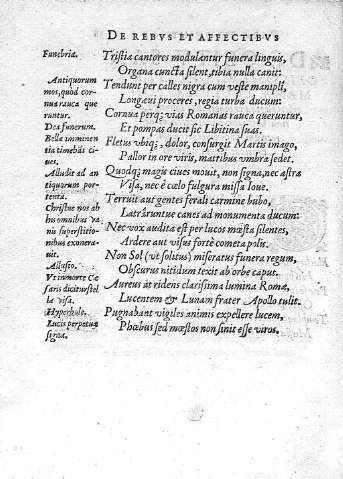 DE REBVS ET AFFECTIBVS
Funebria.
Tristia cantores modulantur funera linguis,
Organa cuncta silent, tibia nulla canit:
Antiquorum
mos, quòd cor-
nua rauca que
runtur.
Tendunt per calles nigra cum veste manipli,
Longæui proceres, regia turba ducum:
Cornua perq; vias Romanas rauca queruntur,
Dea funerum.
Et pompas ducit sic Libitina suas.
Bella imminen
tia timebãt ci-
ues.
Fletus vbiq;, dolor, consurgit Martis imago,
Pallor in ore viris, matribus vmbra sedet.
Alludit ad an
tiquorum por-
tenta.
Quodq; magis ciues mouit, non signa, nec astra
Visa, nec è cœlo fulgura missa Ioue.
Christus nos ab
his omnibus va
nis superstitio-
nibus exonera-
uit.
Terruit aut gentes ferali carmine bubo,
Latráruntue canes ad monumenta ducum:
Nec vox audita est per lucos mœsta silentes,
Ardere aut visus fortè cometa polis.
Allusio.
Non Sol (vt solitus) miseratus funera regum,
Obscurus nitidum texit ab orbe caput.
Vt in morte Cæ
saris dicitur stel
la visa.
Aureus at ridens clarissima lumina Romæ,
Lucentem & Lunam frater Apollo tulit.
Hyperbole.
Lucis perpetuæ
signa.
Pugnabant vigiles animis expellere lucem,
Phœbus sed mœstos non sinit esse viros.